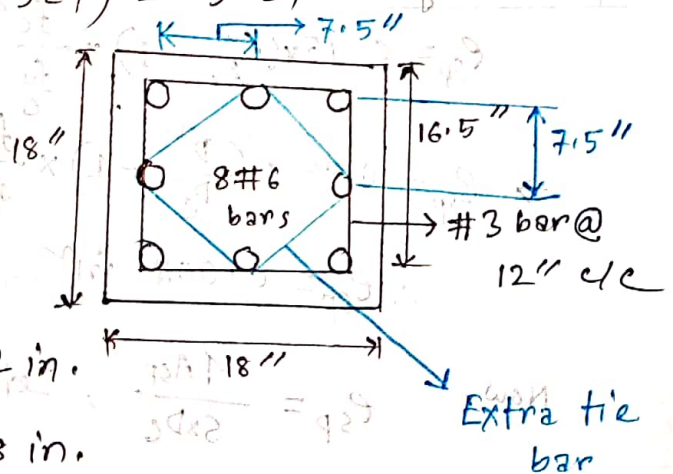 7.5"
18"
16.5"
7.5"
8#6
bars
#3 bar@
12" c/c
in.
18"
in.
Extra tie
bar